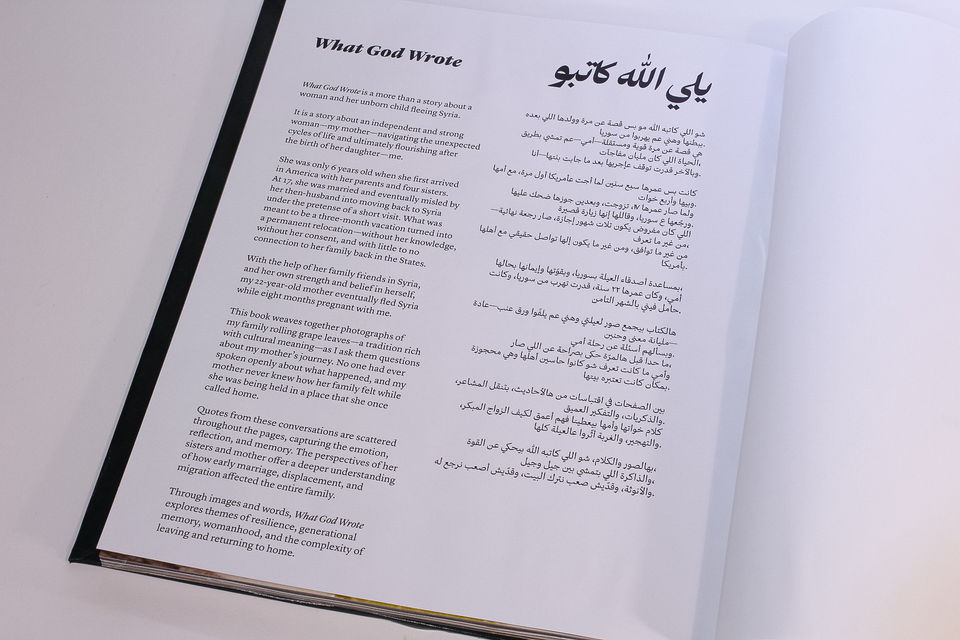 What God Wrote
What God Wrote is a more than a story about a
woman and her unborn child fleeing Syria.
It is a story about an independent and strong
woman—my mother—navigating the unexpected
cycles of life and ultimately flourishing after
the birth of her daughter—me.
She was only 6 years old when she first arrived
in America with her parents and four sisters.
At 17, she was married and eventually misled by
her then-husband into moving back to Syria
under the pretense of a short visit. What was
meant to be a three-month vacation turned into
a permanent relocation—without her knowledge,
without her consent, and with little to no
connection to her family back in the States.
With the help of her family friends in Syria,
and her own strength and belief in herself,
my 22-year-old mother eventually fled Syria
while eight months pregnant with me.
This book weaves together photographs of
my family rolling grape leaves—a tradition rich
with cultural meaning—as I ask them questions
about my mother's journey. No one had ever
spoken openly about what happened, and my
mother never knew how her family felt while
she was being held in a place that she once
called home.
Quotes from these conversations are scattered
throughout the pages, capturing the emotion,
reflection, and memory. The perspectives of her
sisters and mother offer a deeper understanding
of how early marriage, displacement, and
migration affected the entire family.
Through images and words, What God Wrote
explores themes of resilience, generational
memory, womanhood, and the complexity of
leaving and returning to home.
يلي الله كاتبو
شو اللي كاتبه الله مو بس قصة عن مرة وولدها اللي بعده
ببطنها وهني عم يهربوا من سوريا.
هي قصة عن مرة قوية ومستقلة—أمي—عم تمشي بطريق
الحياة اللي كان مليان مفاجآت،
وبالآخر قدرت توقف عإجريها بعد ما جابت بنتها—أنا.
كانت بس عمرها سبع سنين لما أجت عأمريكا أول مرة، مع أمها
وبيها وأربع خوات.
ولما صار عمرها ١٧، تزوجت، وبعدين جوزها ضحك عليها
ورجّعها ع سوريا، وقاللها إنها زيارة قصيرة.
اللي كان مفروض يكون تلات شهور إجازة، صار رجعة نهائية—
من غير ما تعرف،
من غير ما توافق، ومن غير ما يكون إلها تواصل حقيقي مع أهلها
بأمريكا.
بمساعدة أصدقاء العيلة بسوريا، وبقوّتها وإيمانها بحالها،
أمي، وكان عمرها ٢٢ سنة، قدرت تهرب من سوريا، وكانت
حامل فيني بالشهر التامن.
هالكتاب بيجمع صور لعيلتي وهني عم يلفّوا ورق عنب—عادة
مليانة معنى وحنين—
وبسألهم أسئلة عن رحلة أمي.
ما حدا قبل هالمرّة حكى بصراحة عن اللي صار،
وأمي ما كانت تعرف شو كانوا حاسين أهلها وهي محجوزة
بمكان كانت تعتبره بيتها.
بين الصفحات في اقتباسات من هالأحاديث، بتنقل المشاعر،
والذكريات، والتفكير العميق.
كلام خواتها وأمها بيعطينا فهم أعمق لكيف الزواج المبكر،
والتهجير، والغربة أثّروا عالعيلة كلها.
بهالصور والكلام، شو اللي كاتبه الله بيحكي عن القوة،
والذاكرة اللي بتمشي بين جيل وجيل،
والأنوثة، وقدّيش صعب نترك البيت، وقدّيش أصعب نرجع له.